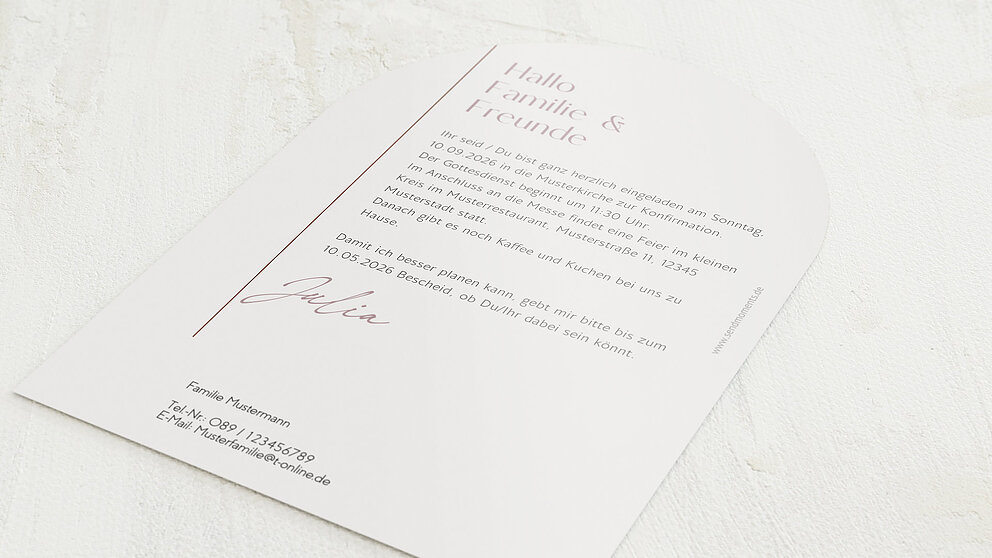 Hallo
Familie &
Freunde
Ihr seid / Du bist ganz herzlich eingeladen am Sonntag,
10.09.2026 in die Musterkirche zur Konfirmation.
Der Gottesdienst beginnt um 11:30 Uhr.
Im Anschluss an die Messe findet eine Feier im kleinen
Kreis im Musterrestaurant, Musterstraße 11, 12345
Musterstadt statt.
Danach gibt es noch Kaffee und Kuchen bei uns zu
Hause.
Damit ich besser planen kann, gebt mir bitte bis zum
10.05.2026 Bescheid, ob Du/Ihr dabei sein könnt.
Julia
www.sendmoments.de
Familie Mustermann
Tel.-Nr.: 089 / 123456789
E-Mail: Musterfamilie@t-online.de